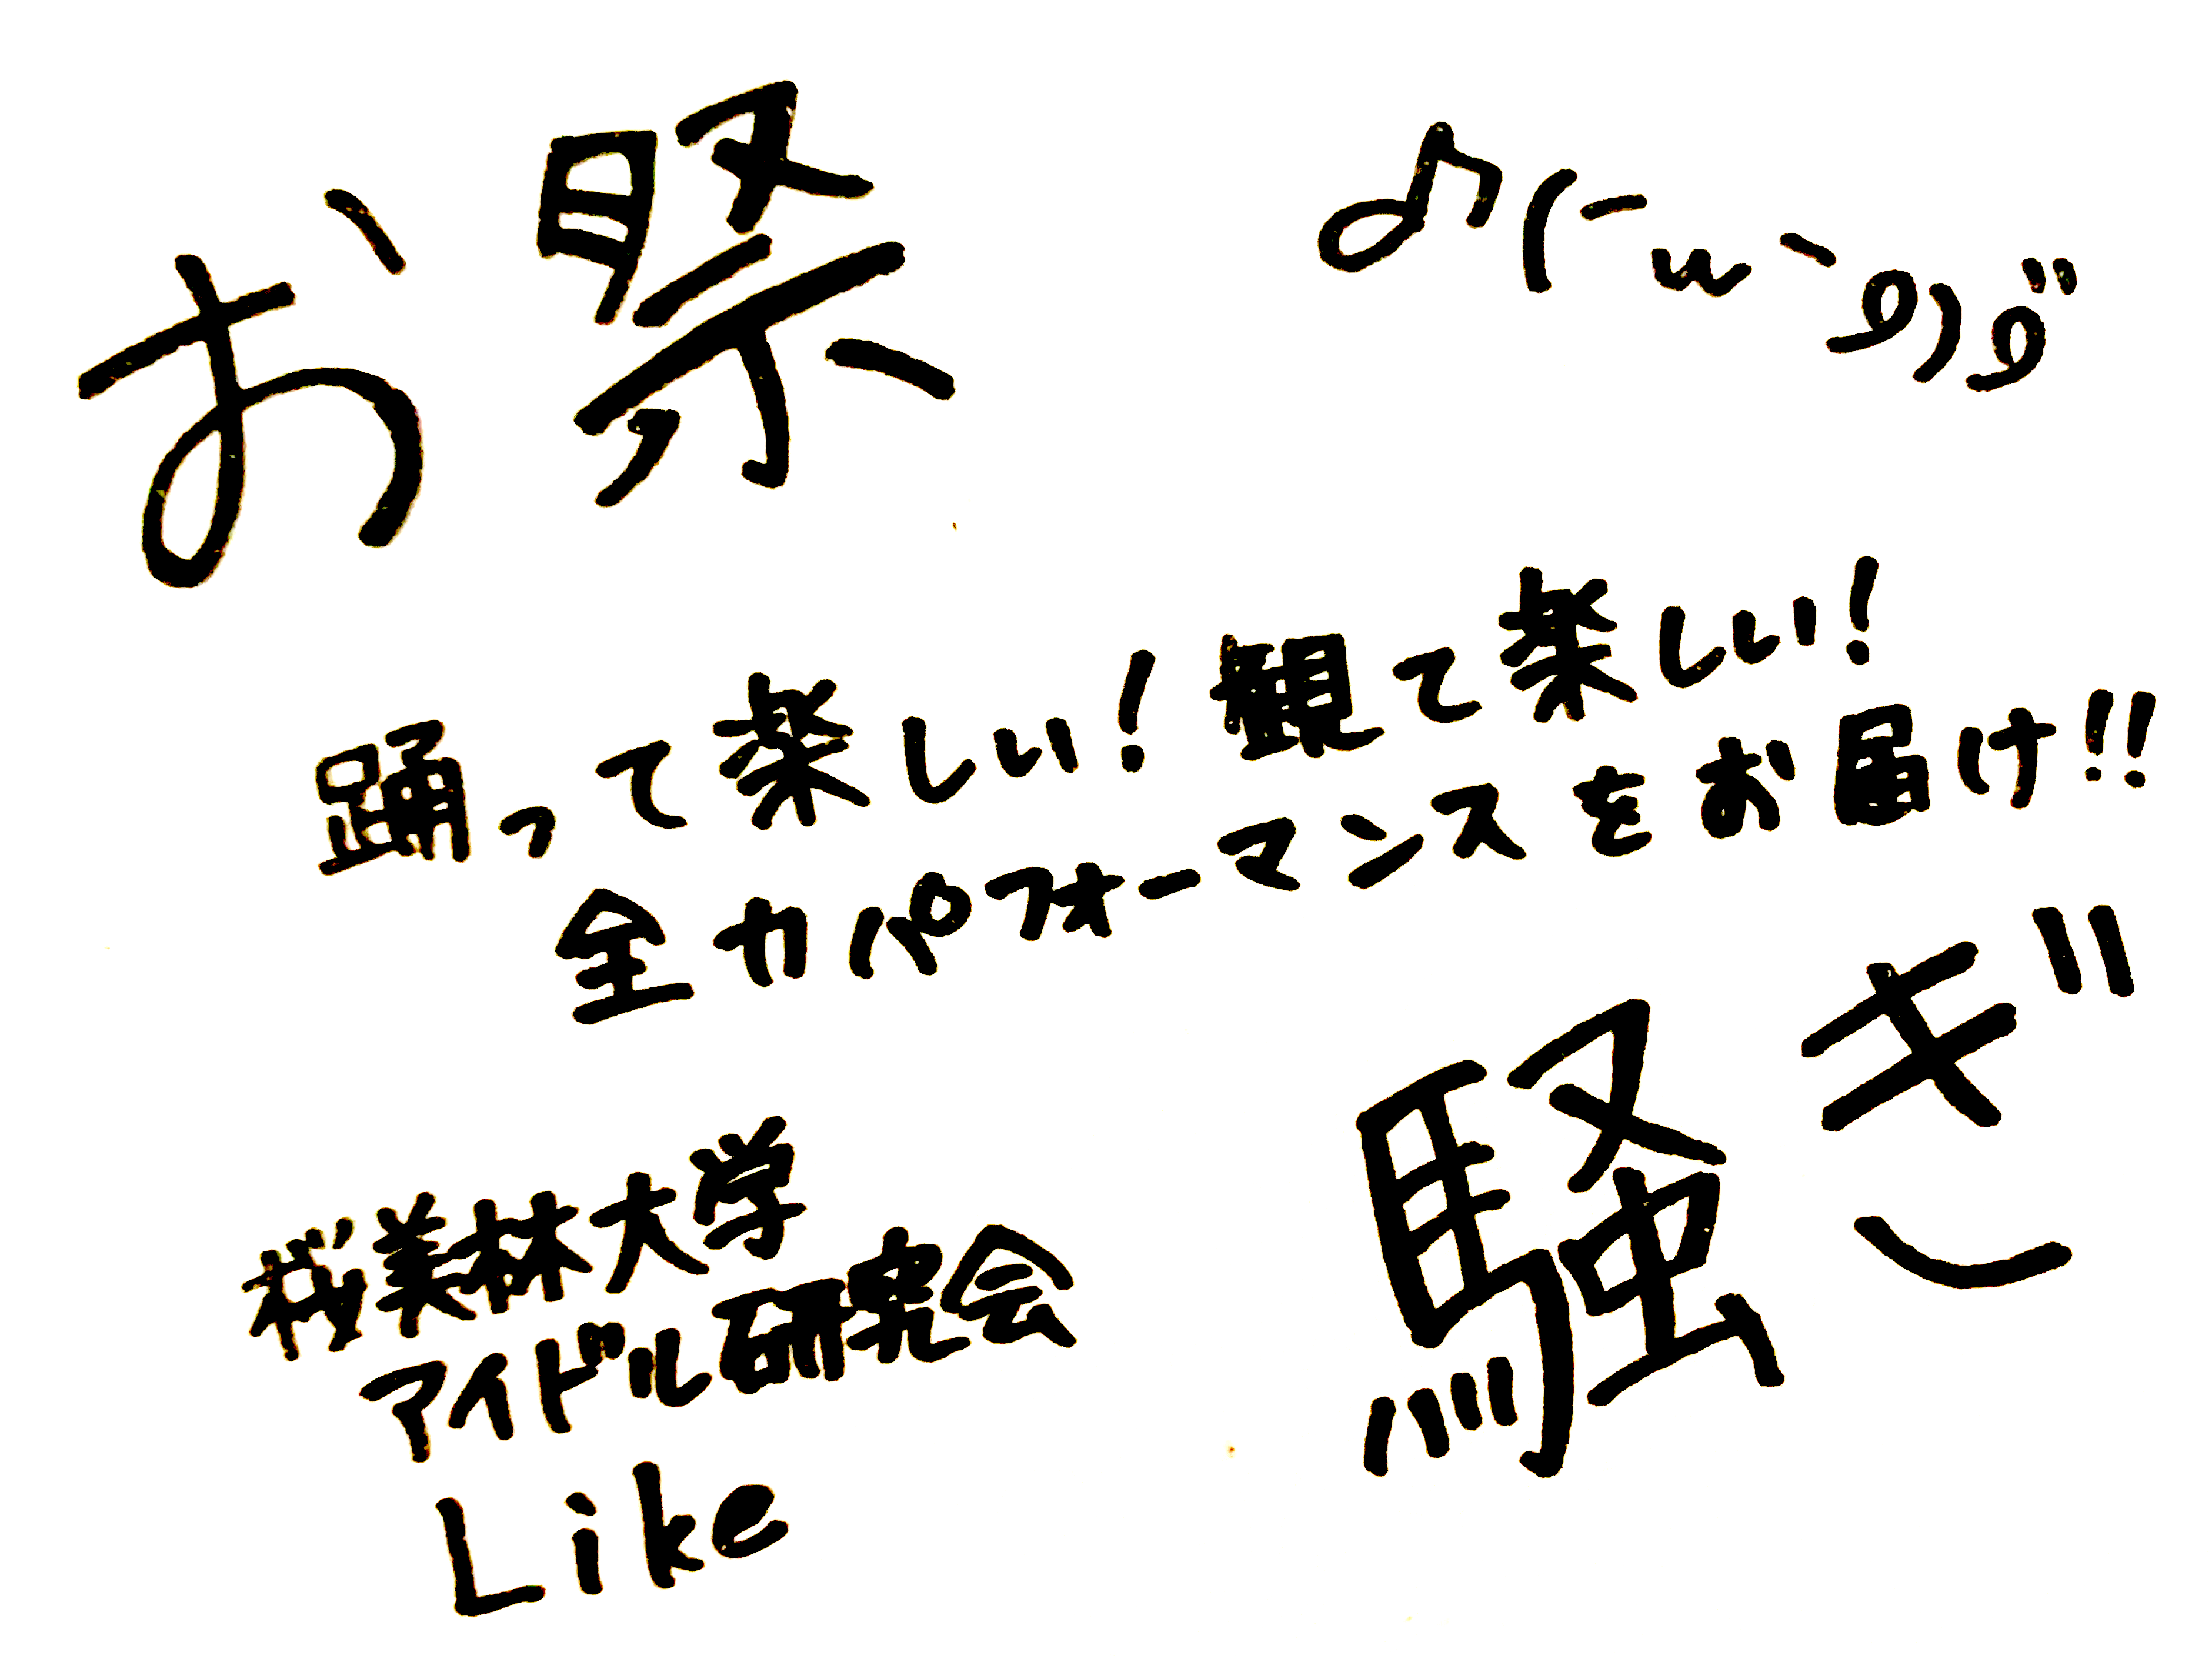 お祭
♪(-ω-9)9゛
踊って楽しい!観て楽しい!
全力パフォーマンスをお届け!!
騒ぎ
桜美林大学
アイドル研究会
Like